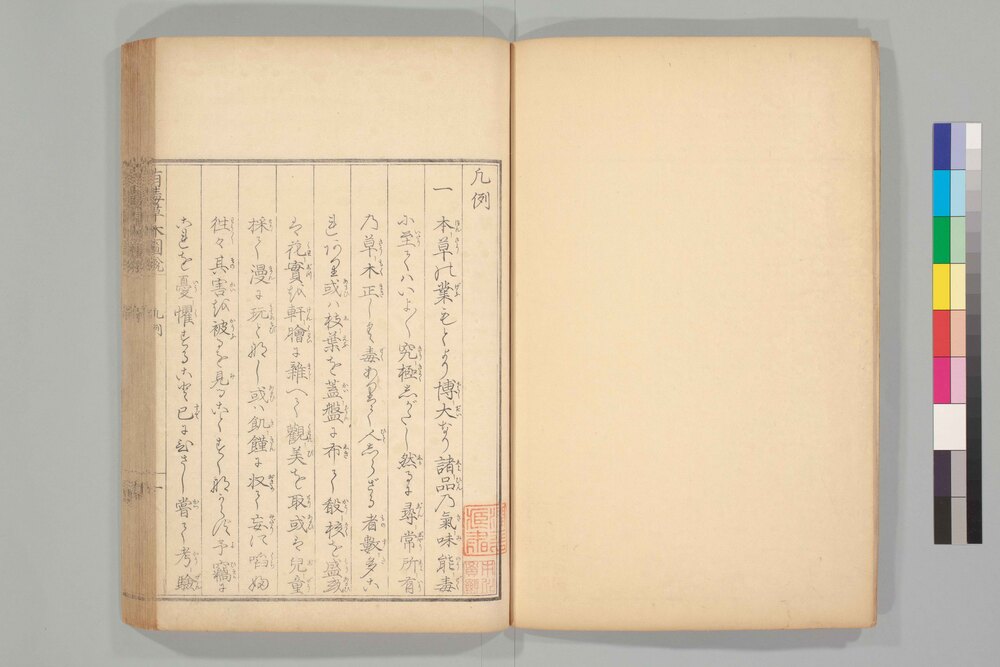 凡例
一 本草の業もとより博大なり諸品乃氣味能毒
に至てハいよ〱究極しがたし然るに尋常所有
乃草木正しく毒ありて人しらざる者數多に
或ハ枝葉を蓋盤に布て殽核を盛
花實を軒牕に雜へて觀美を取或は兒童
採て漫に玩と為し或ハ飢饉に收て妄に啗
徃々其害を被るを見ること少からず予竊に
これを憂懼すること已に久し嘗て考驗
有毒草木圖說
凡例